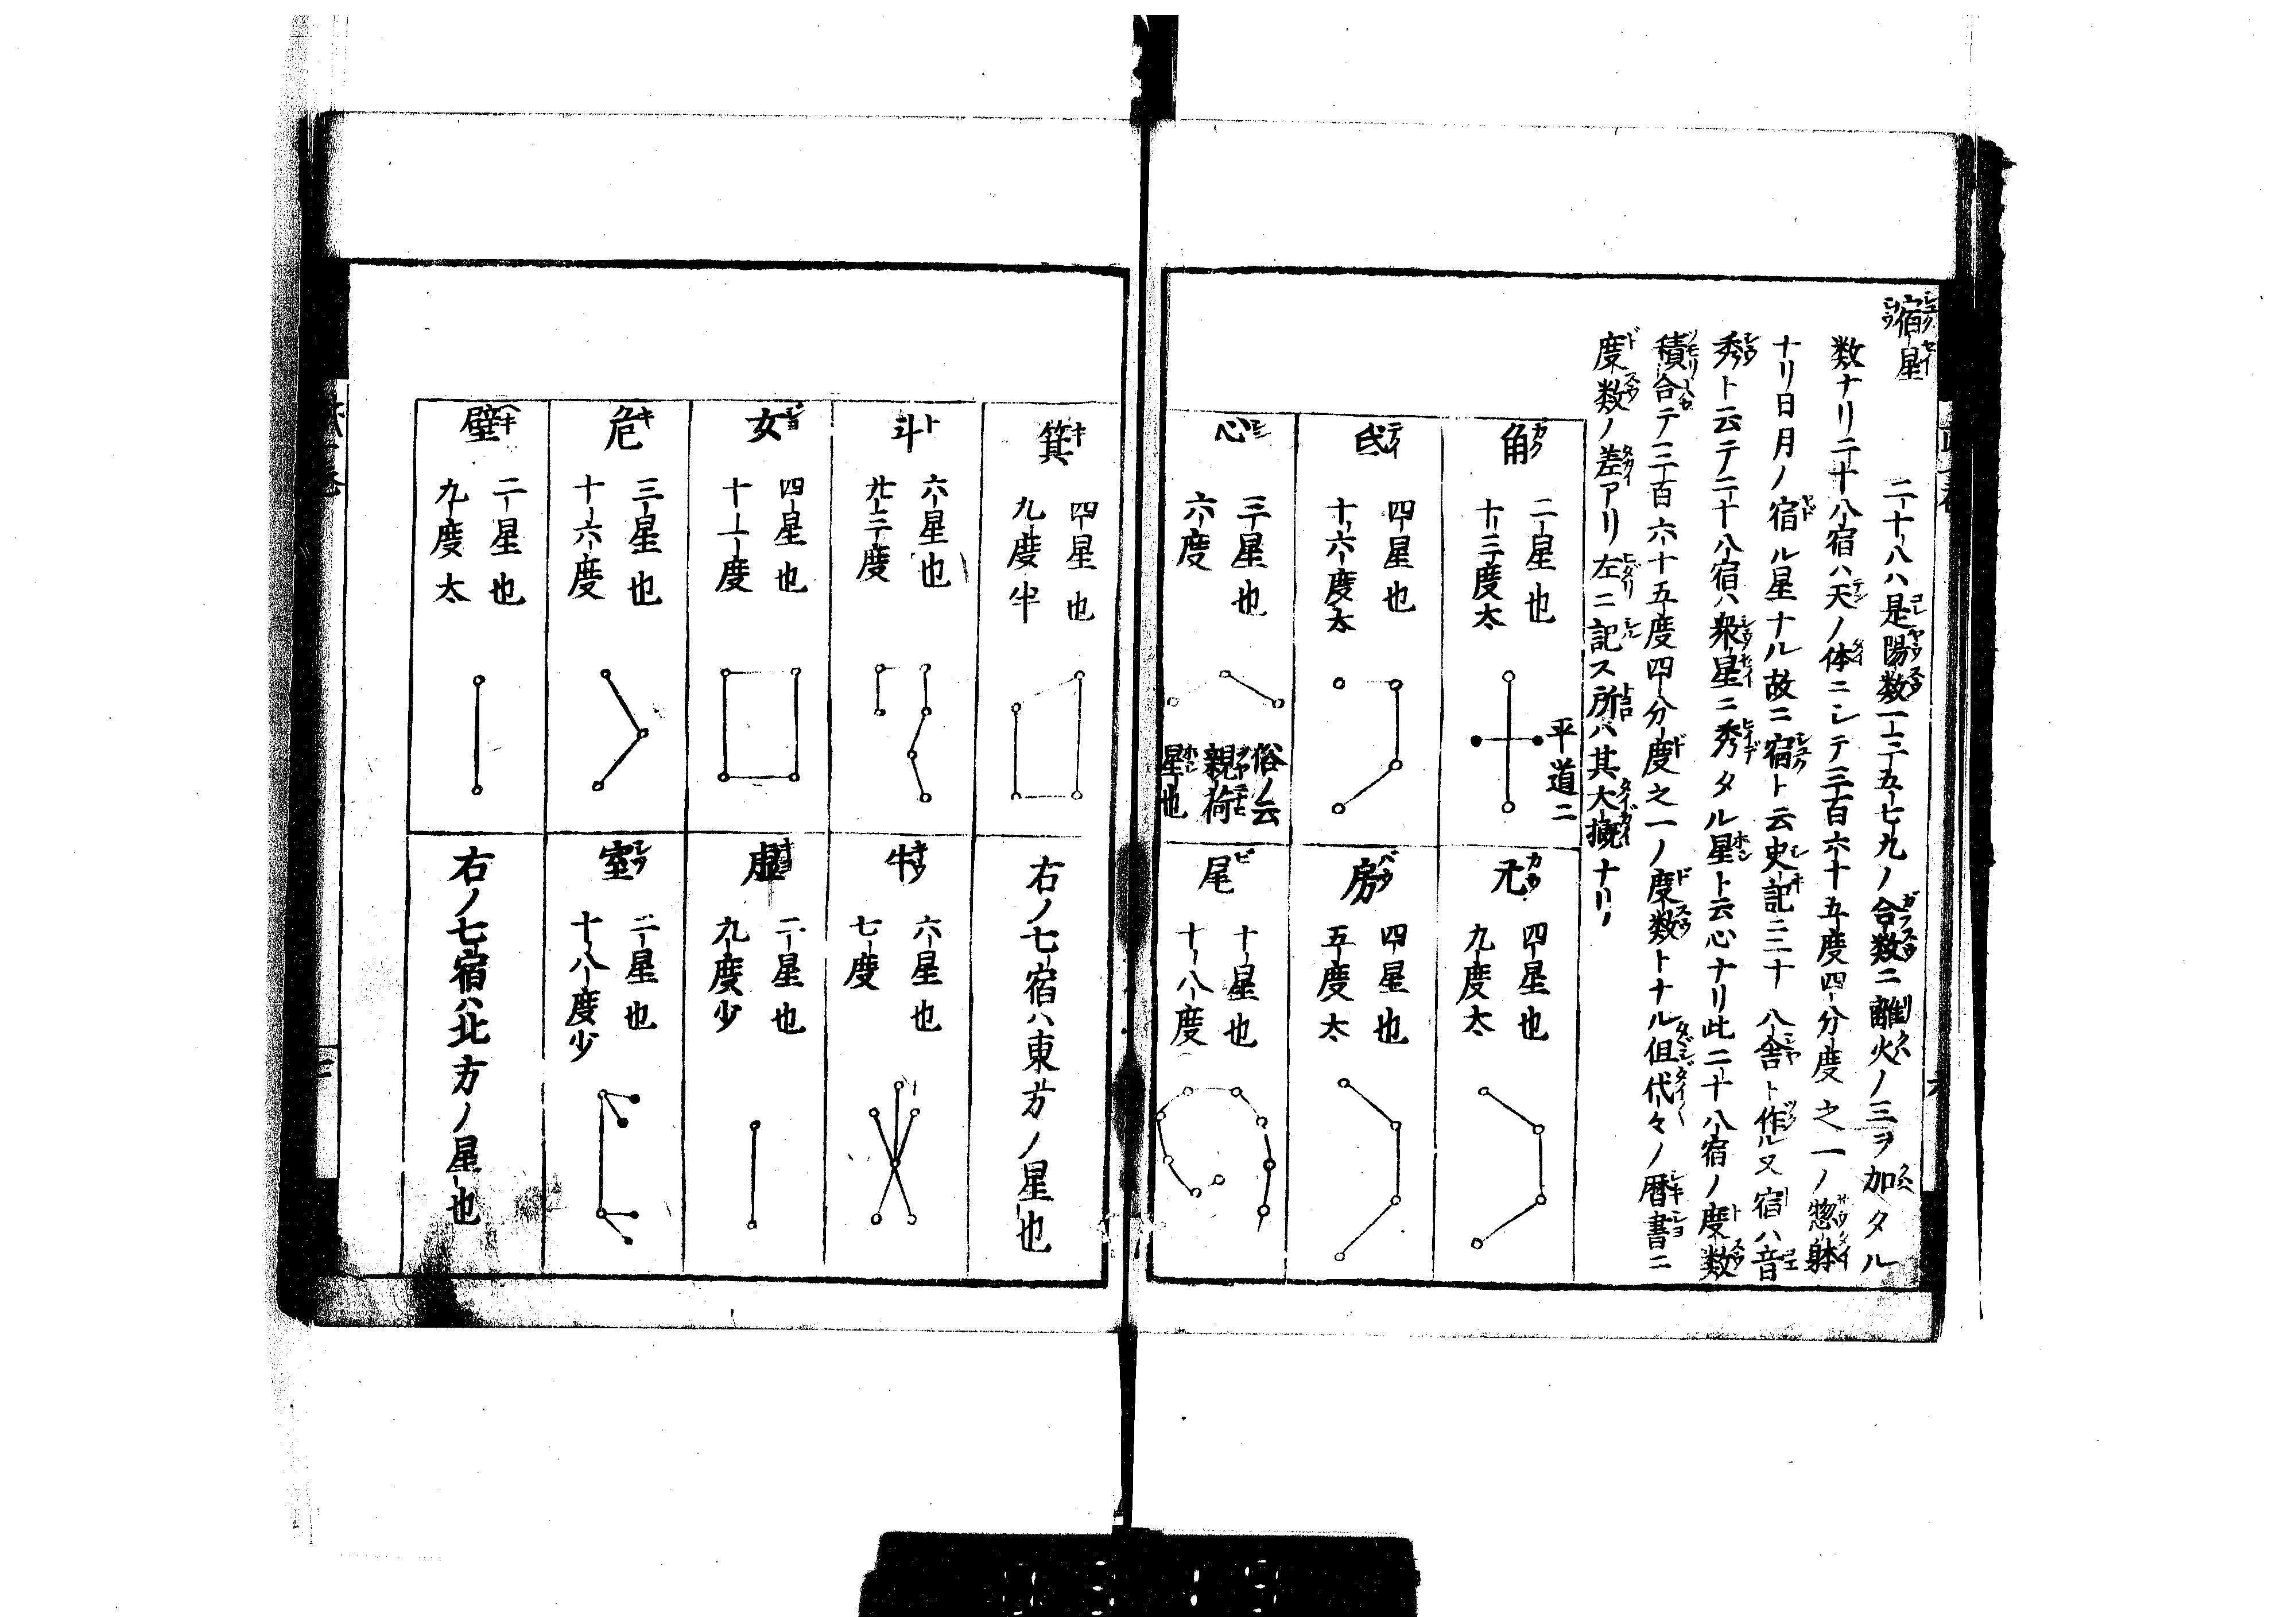 宿星
二十八ハ是陽数一三五七九ノ合数ニ離火ノ三ヲ加タル
数ナリ二十八宿ハ天ノ体ニシテ三百六十五度四分度之一ノ惣躰
ナリ日月ノ宿ル星ナル故ニ宿ト云史記ニ二十八舎ト作ル又宿ハ音
秀ト云テ二十八宿ハ衆星ニ秀タル星ト云心ナリ此二十八宿ノ度数
積合テ三百六十五度四分度之一ノ度数トナル但代々ノ暦書ニ
度数ノ差アリ左ニ記ス所ハ其大概ナリ
角
二星也
十二度太
平道二
亢
四星也
九度太
氐
四星也
十六度太
房
四星也
五度太
心
三星也
六度
俗ノ云
親荷
星也
尾
十星也
十八度
箕
四星也
九度半
右ノ七宿ハ東方ノ星也
斗
六星也
度
牛
六星也
七度
女
四星也
十一度
虚
二星也
九度少
危
三星也
十六度
室
二星也
十八度少
壁
二星也
九度太
右ノ七宿ハ北方ノ星也